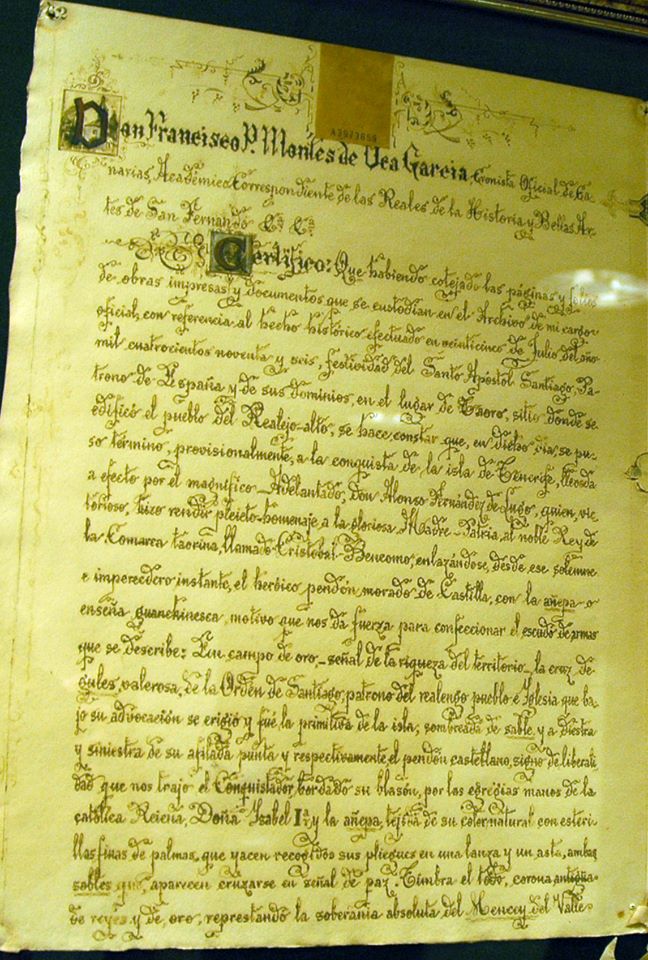 A3973659
Don Francisco P. Montes de Oca García, Cronista Oficial de Ca-
narias, Académico Correspondiente de las Reales de la Historia y Bellas Ar-
tes de San Fernando &ª &ª
Certifico: Que habiendo cotejado las páginas y folios
de obras impresas y documentos que se custodian en el Archivo de mi cargo
oficial, con referencia al hecho histórico efectuado en veinticinco de Julio del año
mil cuatrocientos noventa y seis, festividad del Santo Apóstol Santiago, Pa-
trono de España y de sus dominios, en el lugar de Taoro, sitio donde se
edificó el pueblo del Realejo-alto, se hace constar que, en dicho día, se pu-
so término, provisionalmente, a la conquista de la isla de Tenerife, llevada
a efecto por el magnífico Adelantado, don Alonso Fernández de Lugo, quien, vic-
torioso, hizo rendir pleito-homenaje, a la gloriosa Madre-Patria, al noble Rey de
la Comarca taorina, llamado Cristóbal-Bencomo, enlazándose, desde ese solemne
e imperecedero instante, el heróico pendón morado de Castilla, con la añepa o
enseña guanchinesca, motivo que nos da fuerza para confeccionar el escudo de armas
que se describe: En campo de oro—señal de la riqueza del territorio—la cruz de
gules, valerosa, de la Orden de Santiago, patrono del realengo pueblo é Iglesia que ba-
jo su advocación se erigió y fué la primitiva de la isla, sombreada de sable, y a diestra
y siniestra de su afilada punta y respectivamente, el pendón castellano, signo de liberali-
dad que nos trajo el Conquistador, bordado su blasón, por las egregias manos de la
católica Reiena, Doña Isabel Iª, y la añepa, tejida de su color natural con esteri-
llas finas de palmas, que yacen recogidos sus pliegues en una lanza y un asta, ambas
sables que, aparecen cruzarse en señal de paz. Timbra el todo, corona antigua
de reyes y de oro, represtando la soberanía absoluta del Mencey del Valle